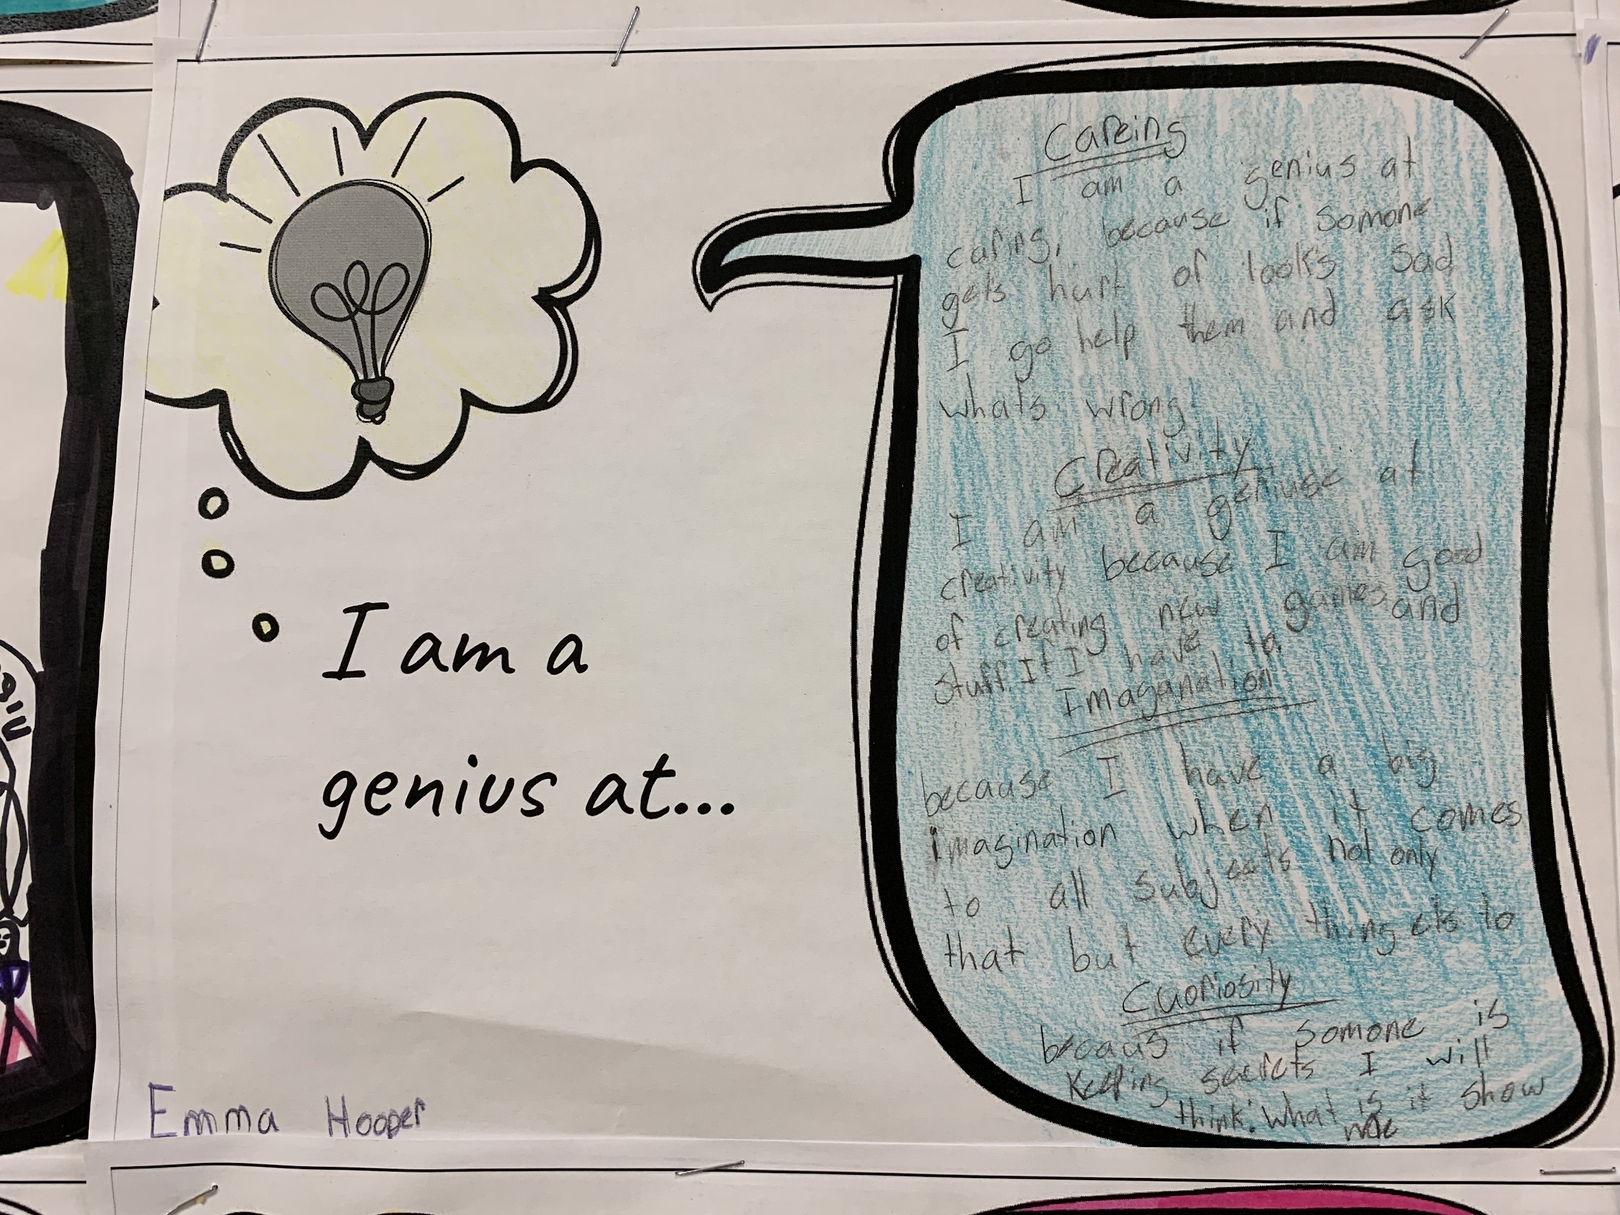 I am a
genius at...
Emma Hooper
Careing
I am a genius at
caring, because if somone
gets hurt or look's sad
I go help them and ask
whats wrong.
Creativity
I am a geniuse at
creativity because I am good
of creating new games and
stuff. If I have to
Imaganation
because I have a big
Imagination when it comes
to all subjects not only
that but every thing els to
Cuoriosity
becaus if somone is
Keeping secrets I will
think: What is it show
me